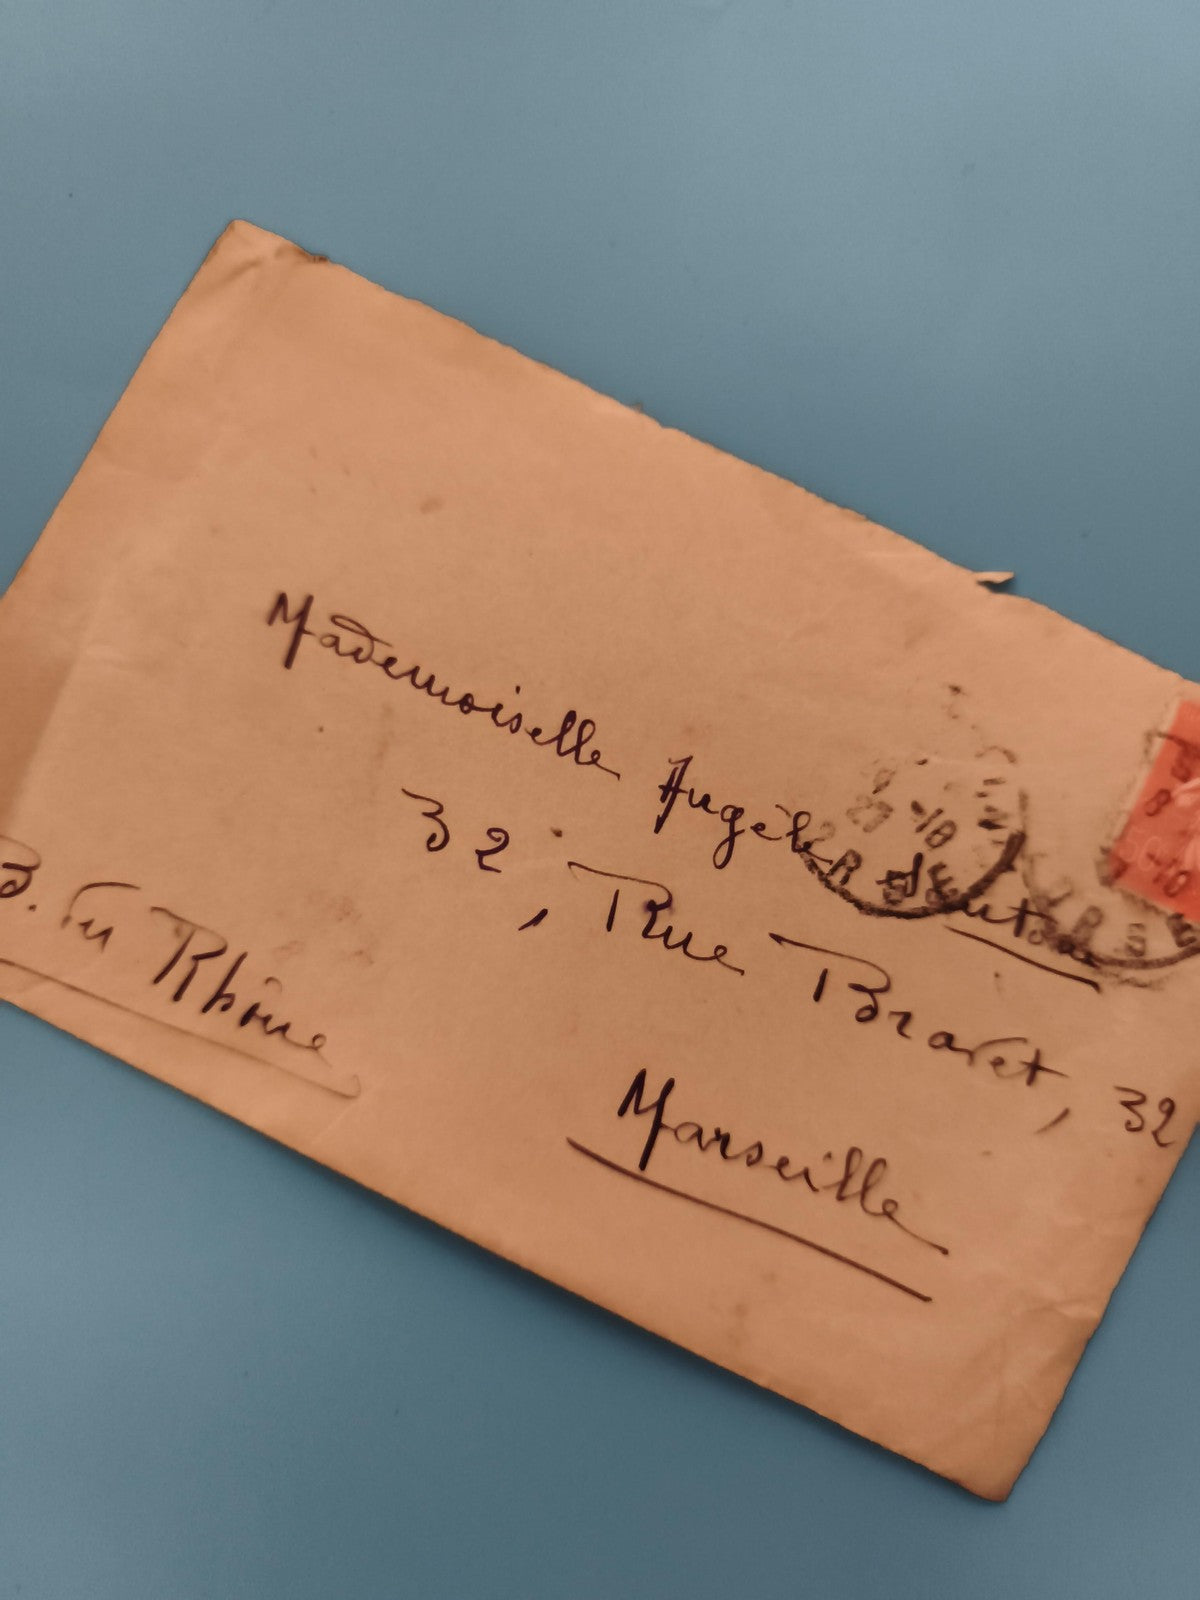 Mademoiselle Angèle
32, Rue Bravet, 32
Marseille
B. du Rhône
27 -10